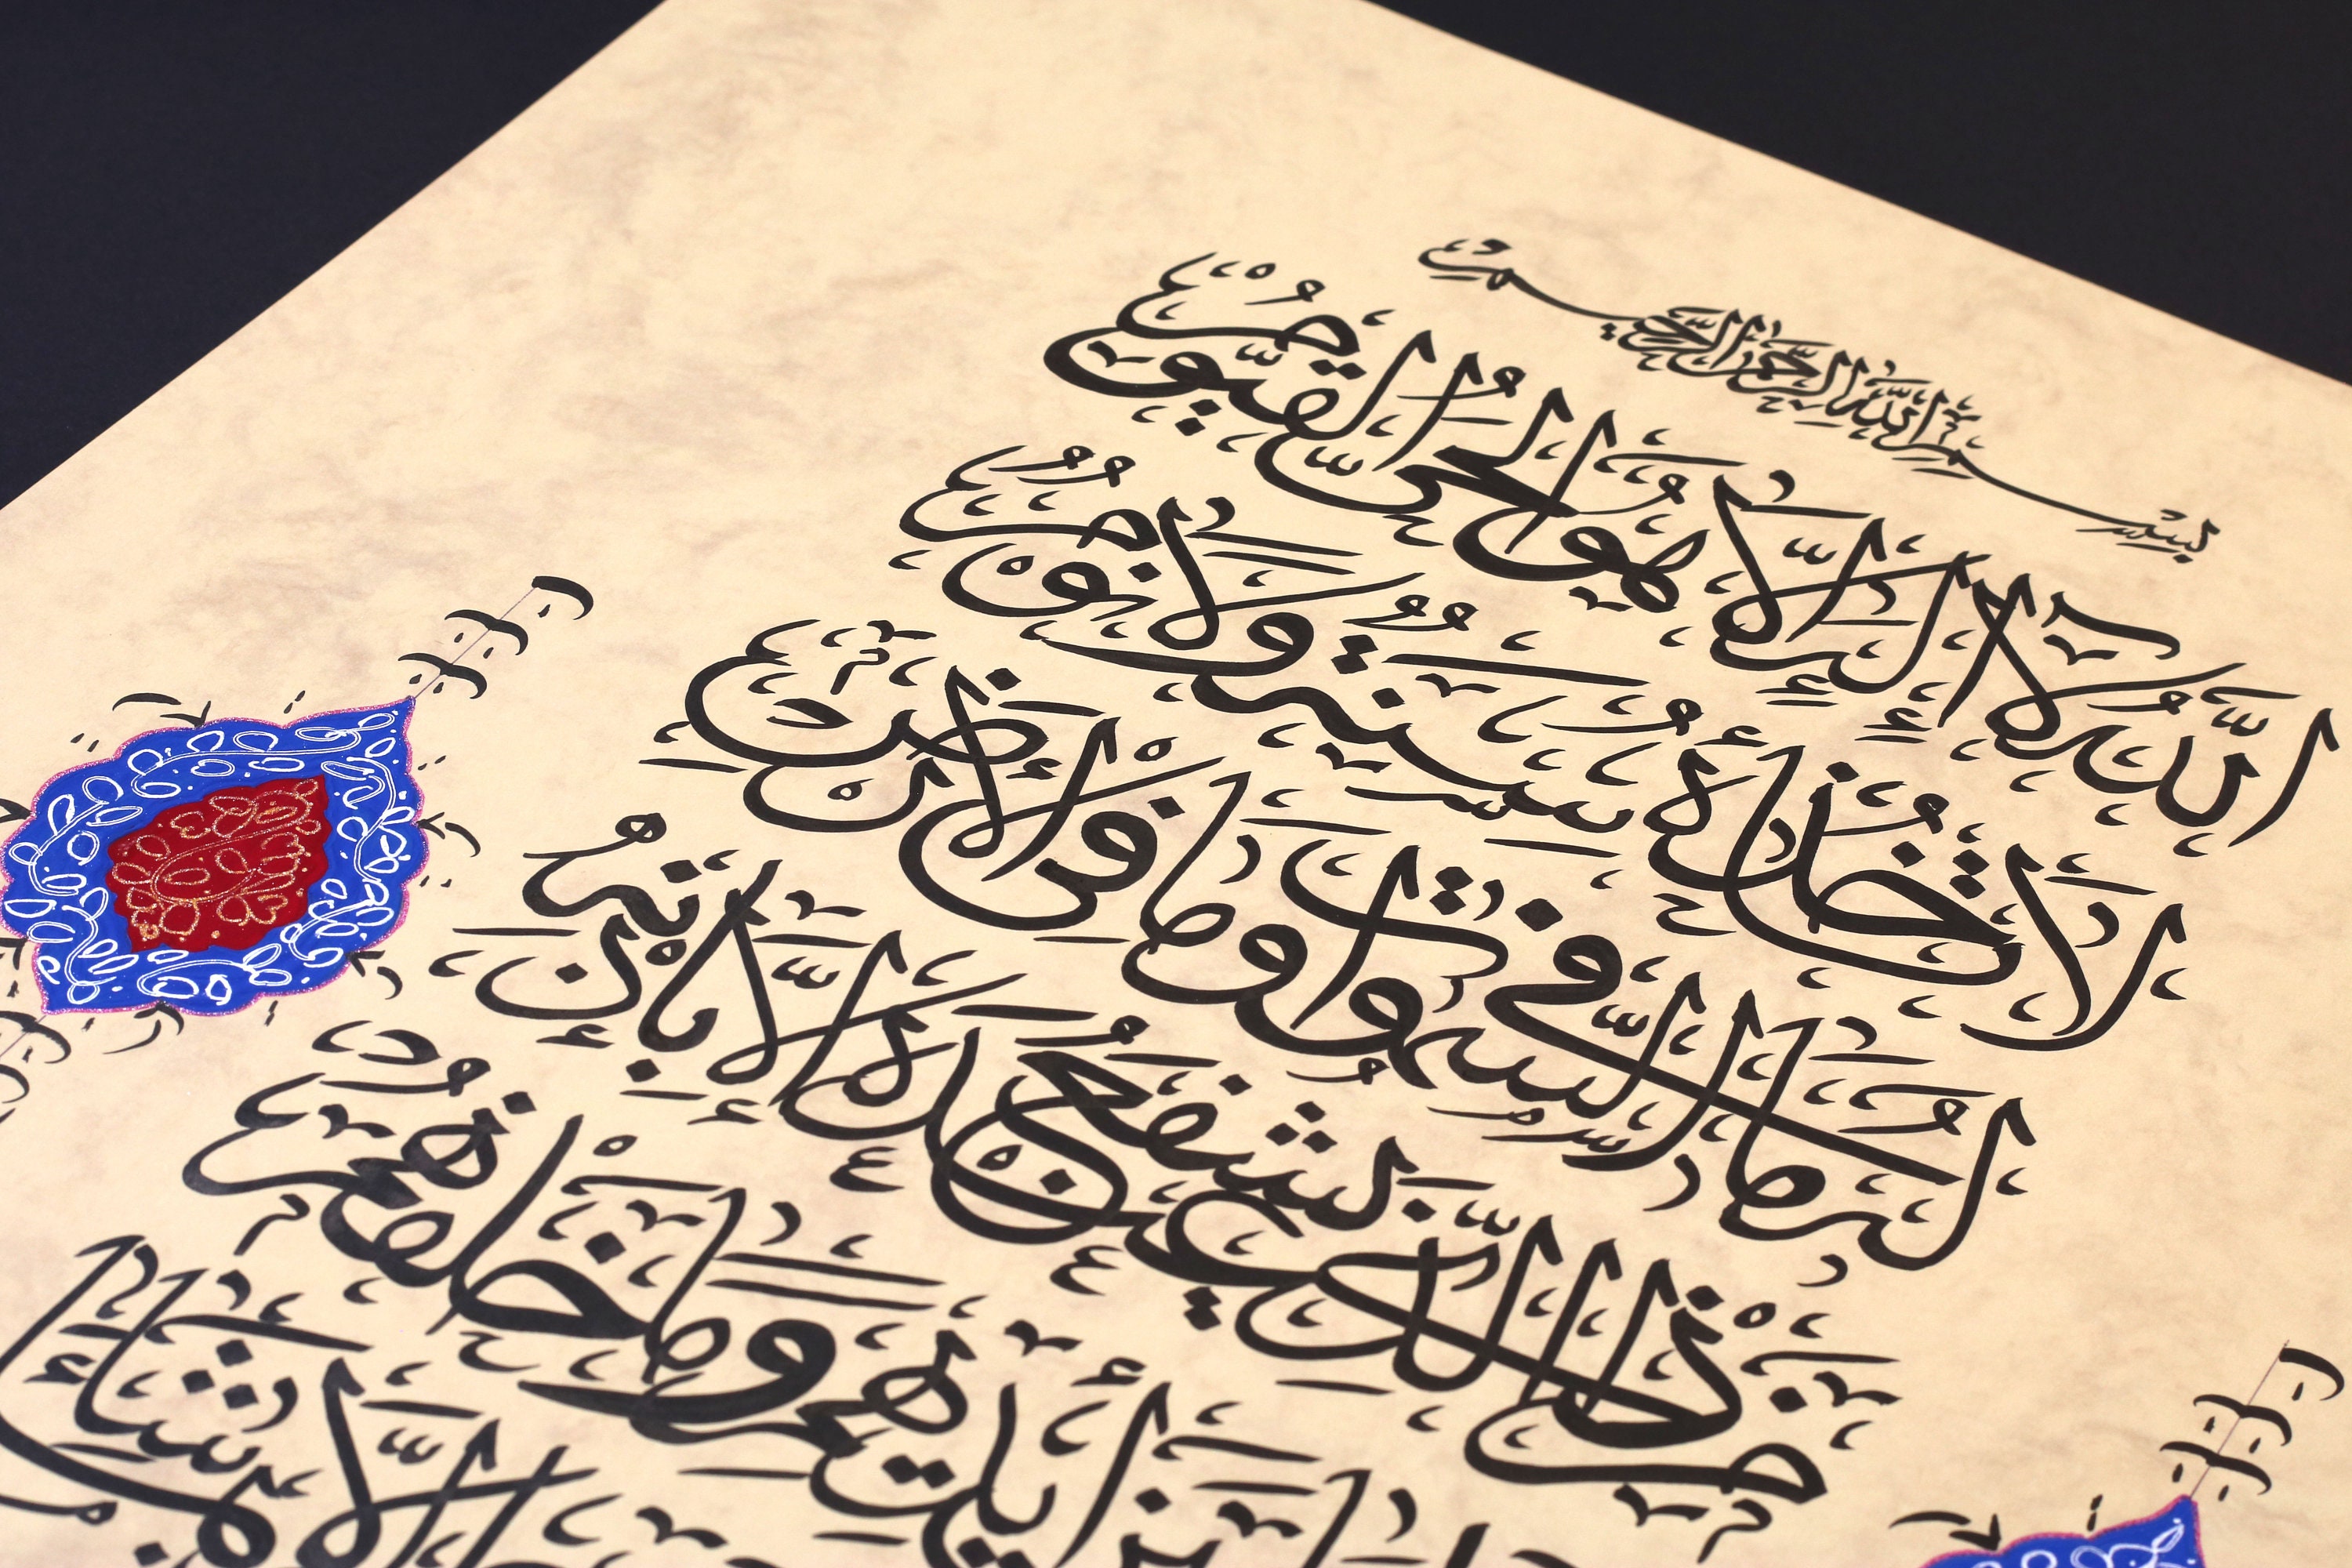 بِسْمِ اللَّهِ الرَّحْمَنِ الرَّحِيمِ
اللَّهُ لَا إِلَهَ إِلَّا هُوَ الْحَيُّ الْقَيُّومُ
لَا تَأْخُذُهُ سِنَةٌ وَلَا نَوْمٌ
لَهُ مَا فِي السَّمَوَاتِ وَمَا فِي الْأَرْضِ
مَنْ ذَا الَّذِي يَشْفَعُ عِنْدَهُ إِلَّا بِإِذْنِهِ
يَعْلَمُ مَا بَيْنَ أَيْدِيهِمْ وَمَا خَلْفَهُمْ
إِلَّا بِمَا شَاءَ